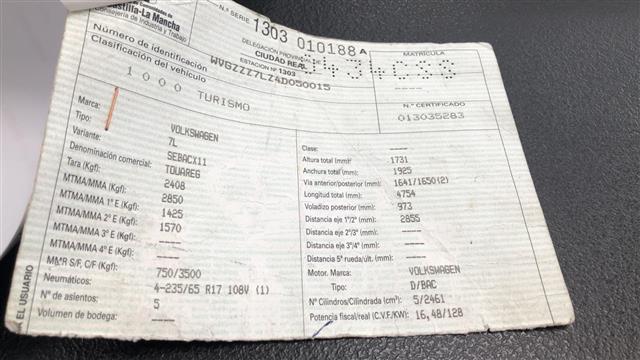 Castilla-La Mancha
Consejería de Industria y Trabajo
N.º SERIE 1303 010188 A
DELEGACIÓN PROVINCIAL DE
CIUDAD REAL
ESTACIÓN Nº 1303
MATRÍCULA
Número de identificación WVGZZZ7LZ4D050015
Clasificación del vehículo
1000 TURISMO
N.º CERTIFICADO
013035283
Marca: VOLKSWAGEN
Tipo: 7L
Variante: SEBACX11
Denominación comercial: TOUAREG
Tara (Kgf): 2408
MTMA/MMA (Kgf): 2850
MTMA/MMA 1º E (Kgf): 1425
MTMA/MMA 2º E (Kgf): 1570
MTMA/MMA 3º E (Kgf): ----
MTMA/MMA 4º E (Kgf): ----
M.M.R S/F, C/F (Kgf): 750/3500
Neumáticos: 4-235/65 R17 108V (1)
Nº de asientos: 5
Volumen de bodega: ----
Clase: ----
Altura total (mm): 1731
Anchura total (mm): 1925
Vía anterior/posterior (mm): 1641/1650(2)
Longitud total (mm): 4754
Voladizo posterior (mm): 973
Distancia eje 1º/2º (mm): 2855
Distancia eje 2º/3º (mm): ----
Distancia eje 3º/4º (mm): ----
Distancia 5ª rueda/últ. (mm): ----
Motor. Marca: VOLKSWAGEN
Tipo: D/BAC
Nº Cilindros/Cilindrada (cm³): 5/2461
Potencia fiscal/real (C.V.F/KW): 16,48/128
EL USUARIO